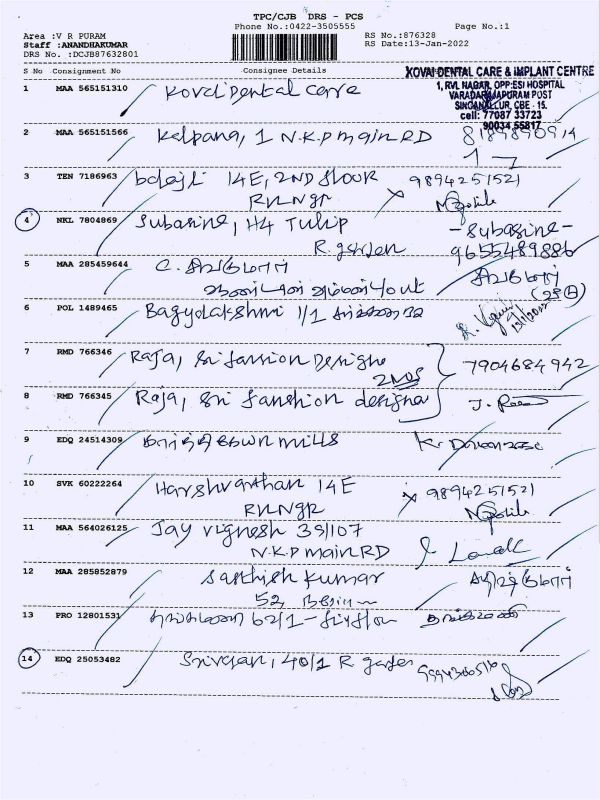 TPC/CJB DRS - PCS
Phone No.:0422-3505555 Page No.:1
Area :V R PURAM RS No.:876328
Staff :ANANDHAKUMAR RS Date:13-Jan-2022
DRS No. :DCJB87632801
S No Consignment No Consignee Details
KOVAI DENTAL CARE & IMPLANT CENTRE
1, RVL NAGAR, OPP:ESI HOSPITAL
VARADARAJAPURAM POST
SINGANALLUR, CBE - 15.
cell: 77087 33723
90034 55817
1 MAA 565151310 Kovai Dental care
2 MAA 565151566 Kalpana, 1 N.K.P main RD
3 TEN 7186963 balaji 14E, 2ND floor 9894251521
RVLNgr
4 NKL 7804869 Subasine, H4 Tulip -Subasine-
R. garden 9655489886
5 MAA 285459644 C. சிவகுமார் சிவகுமார்
6 POL 1489465 Bagyalakshmi 1/1
13/1/2022
7 RMD 766346 Raja, Sri fansion Designe 7904684942
2NOS
8 RMD 766345 Raja, Sri fanshion designer
9 EDQ 24514309 mills
10 SVK 60222264 Harshvarthan 14E 9894251521
RVLNgr
11 MAA 564026125 Jay Vignesh 39/107
N.K.P main RD
12 MAA 285852879 Sasthish Kumar
52
13 PRO 12801531 தங்கமணி 62/1 தங்கமணி
14 EDQ 25053482 40/1 R garden